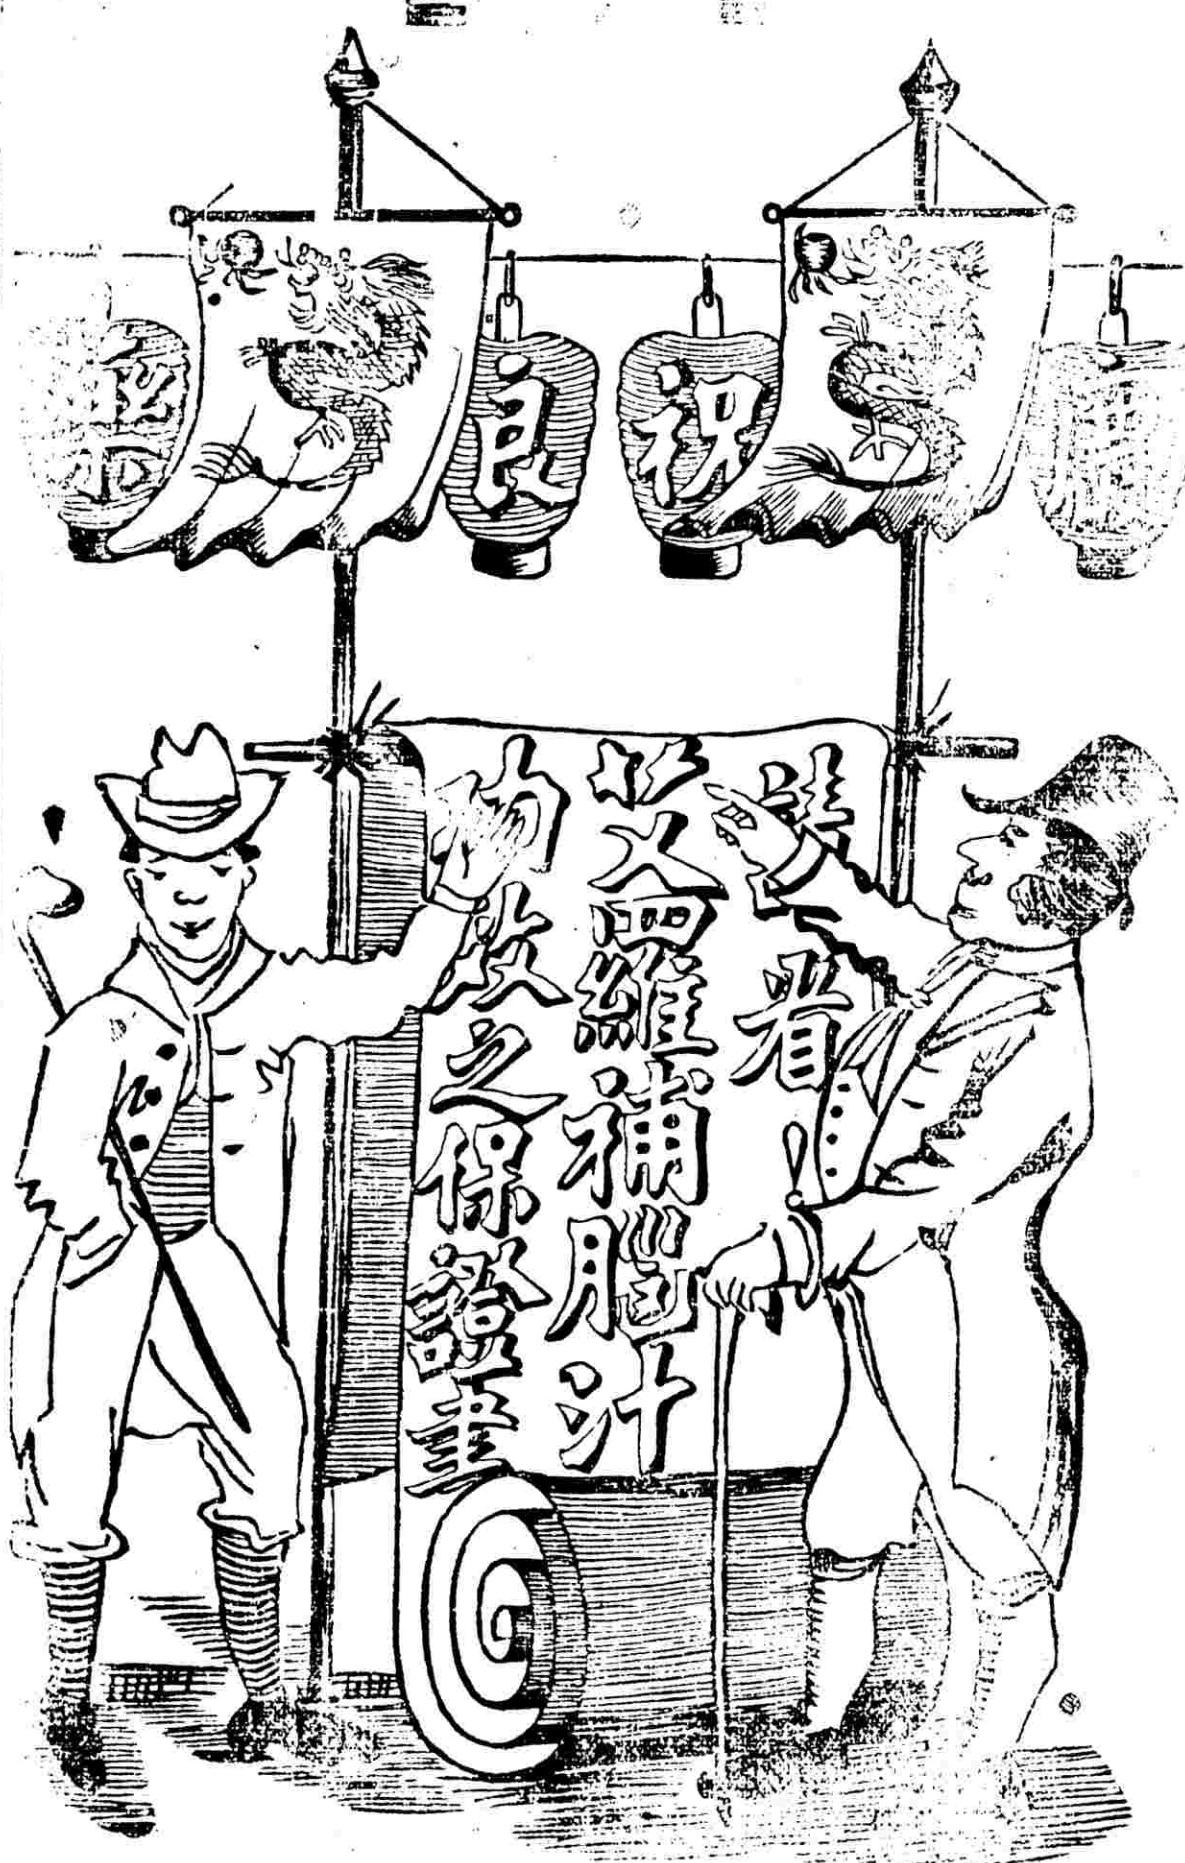 祝
良
藥
請看
艾羅補腦汁
功效之保證書